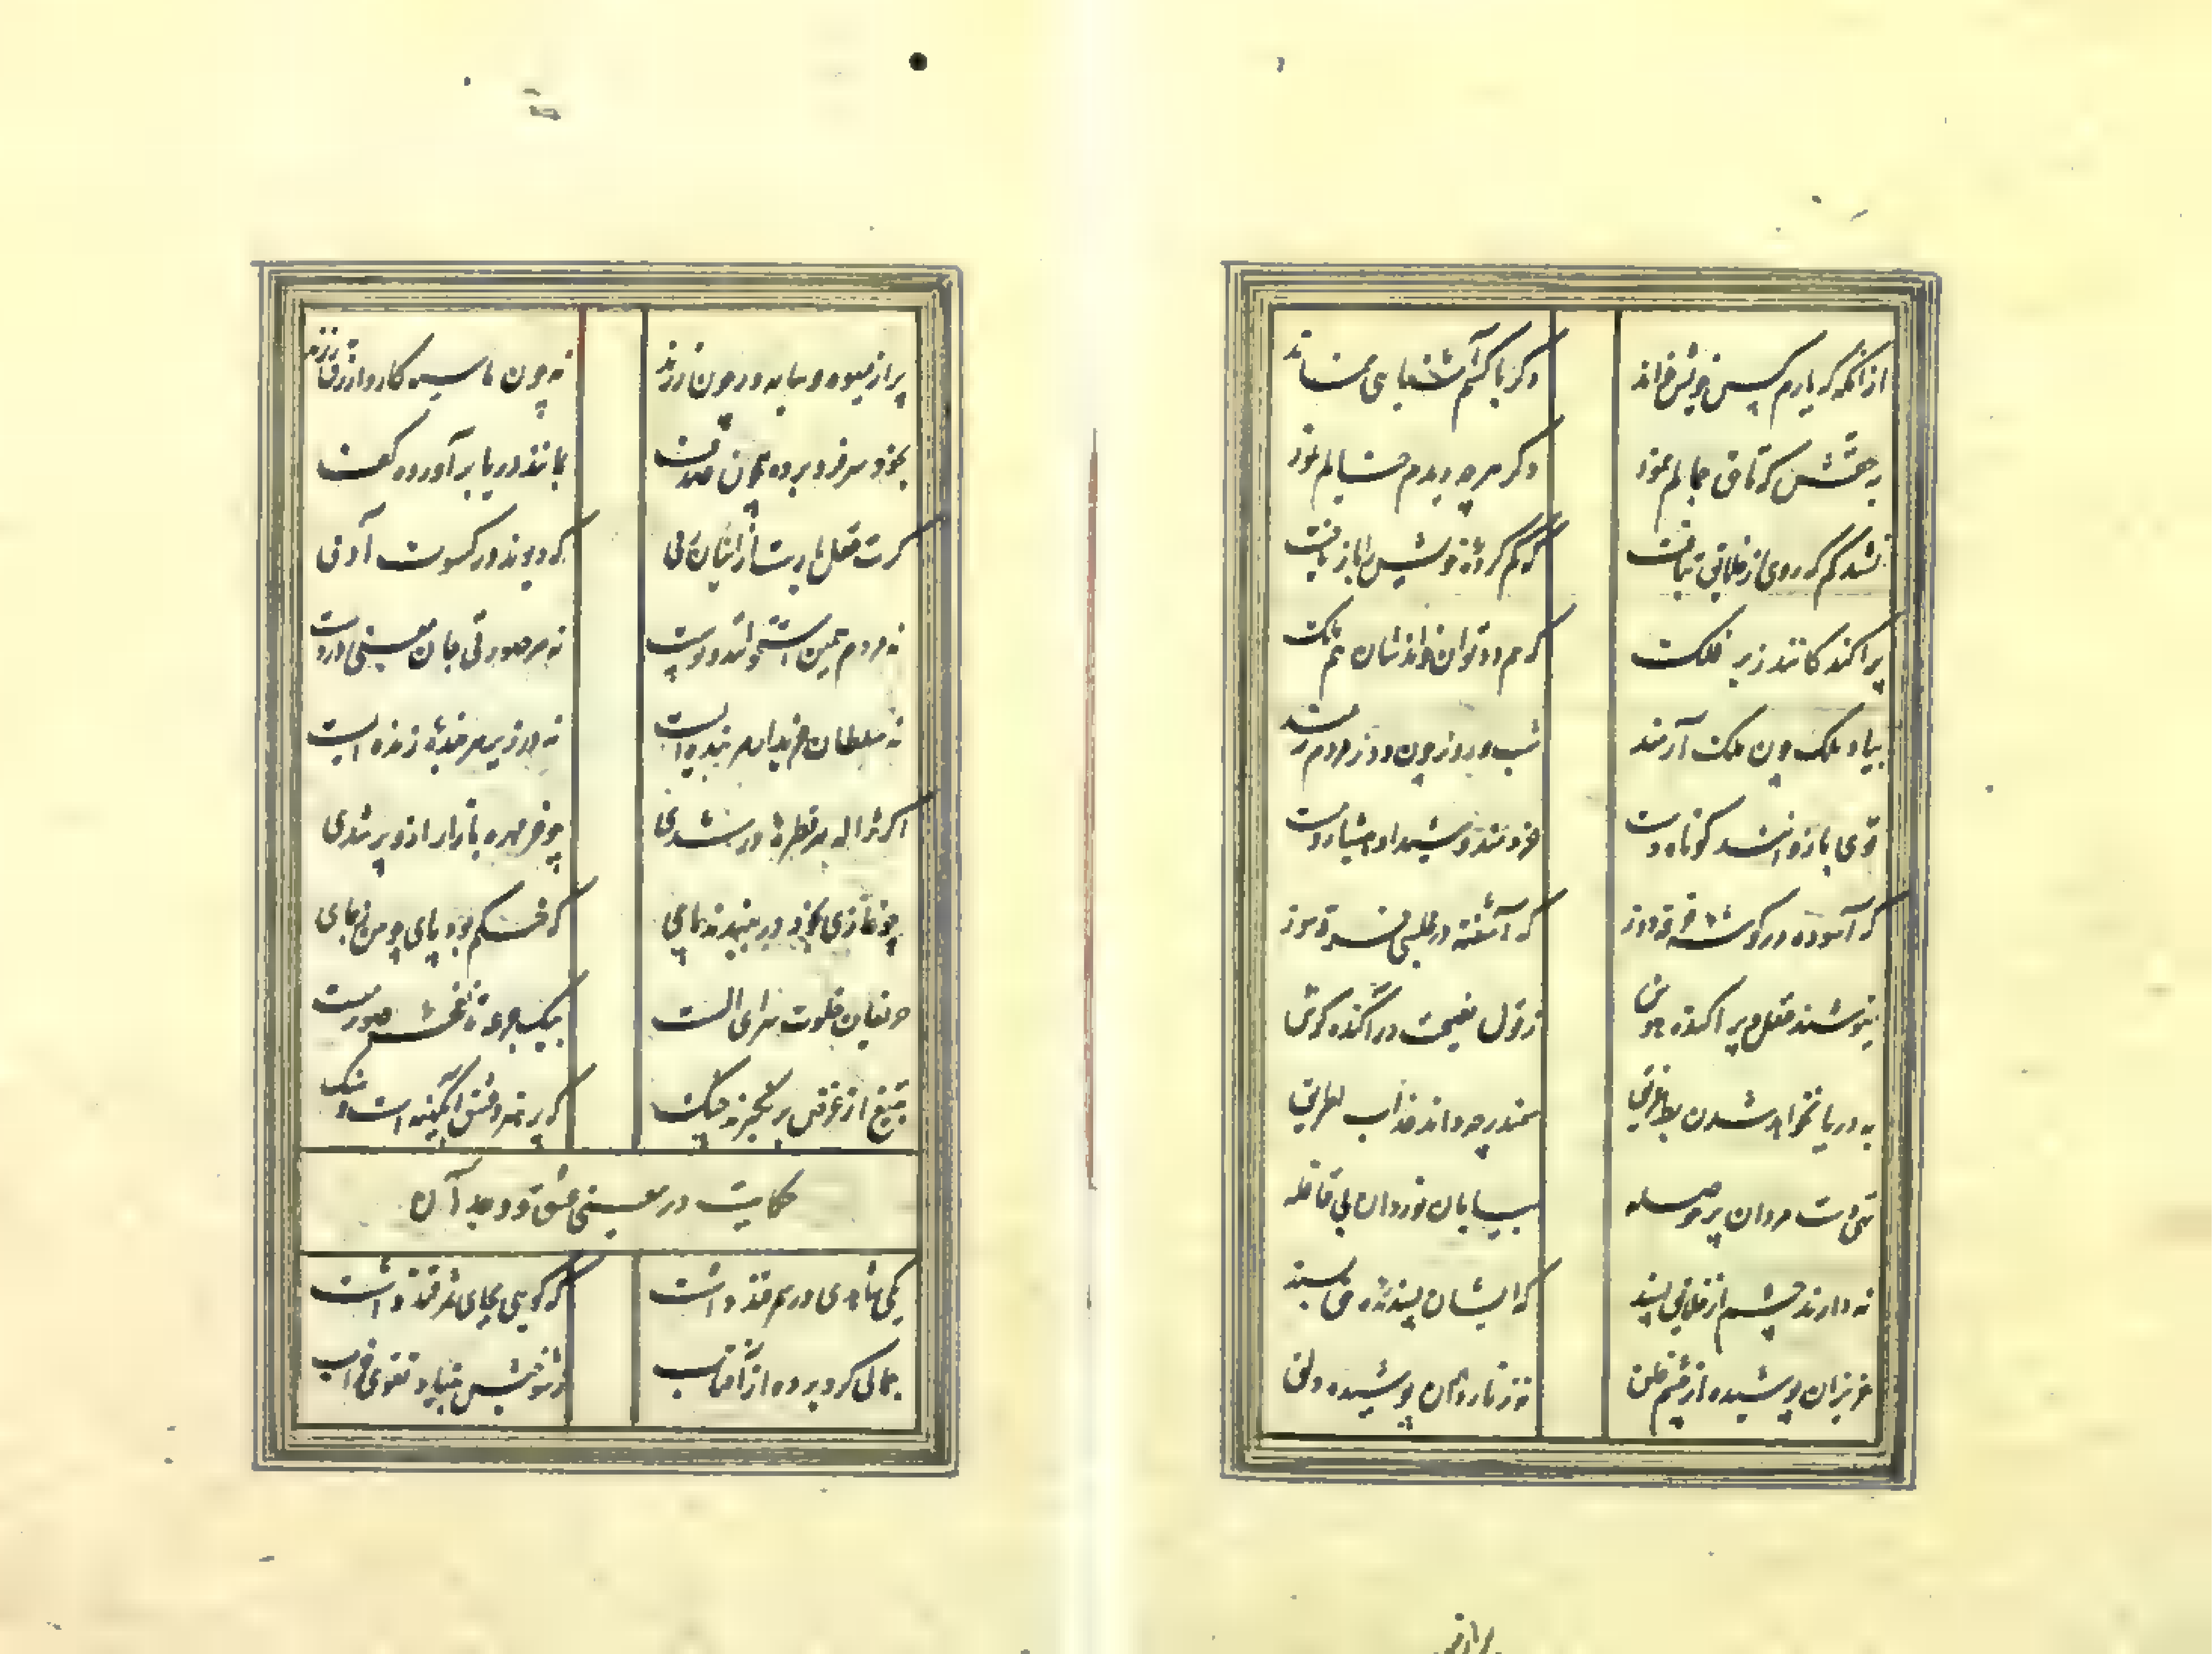 از آنگه که یارم کس خویش خواند دگر با کسم آشنایی نماند
به حقش که تا حق جمالم نمود دگر هرچه دیدم خیالم نمود
نشد گم که روی از خلایق بتافت که گم کرده خویش را باز یافت
پراکندگانند زیر فلک که هم دد توان خواندشان هم ملک
بیاد ملک چون ملک نارمند شب و روز چون دد ز مردم رمند
قوی بازوانند کوتاه دست خردمند و شیدا و هشیار و مست
که آسوده در گوشه خرقه دوز که آشفته در مجلسی خرقه سوز
پریشیده عقل و پراکنده هوش ز قول نصیحت در آکنده گوش
به دریا نخواهد شدن بط غریق سمندر چه داند عذاب الحریق
تهی دست مردان پر حوصله بیابان نوردان بی قافله
ندارند چشم از خلایق پسند که ایشان پسندیده حق بسند
عزیزان پوشیده از چشم خلق نه زنار داران پوشیده دلق
پر از میوه و سایه ور چون رزند نه چون ما سیه کار و ازرق رزند
بخود سر فرو برده همچون صدف نه مانند دریا بر آورده کف
گرت عقل یارست از ایشان رمی که دیوند در کسوت آدمی
نه مردم همین استخوانند و پوست نه هر صورتی جان معنی دروست
نه سلطان خریدار هر بنده ایست نه در زیر هر ژنده زنده ایست
اگر ژاله هر قطره در شدی چو خرمهره بازار ازو پر شدی
چو غازی بخود بر نبندند پای که محکم رود پای چوبین ز جای
حریفان خلوت سرای الست بیک جرعه تا نفخه صور مست
بتیغ از غرض بر نگیرند چنگ که پرهیز و عشق آبگینه است و سنگ
حکایت در معنی عشق و وجد آن
یکی شاهدی در سمرقند داشت که گویی بجای سمر قند داشت
جمالی گرو برده از آفتاب ز شوخیش بنیاد تقوی خراب
پر از میوه